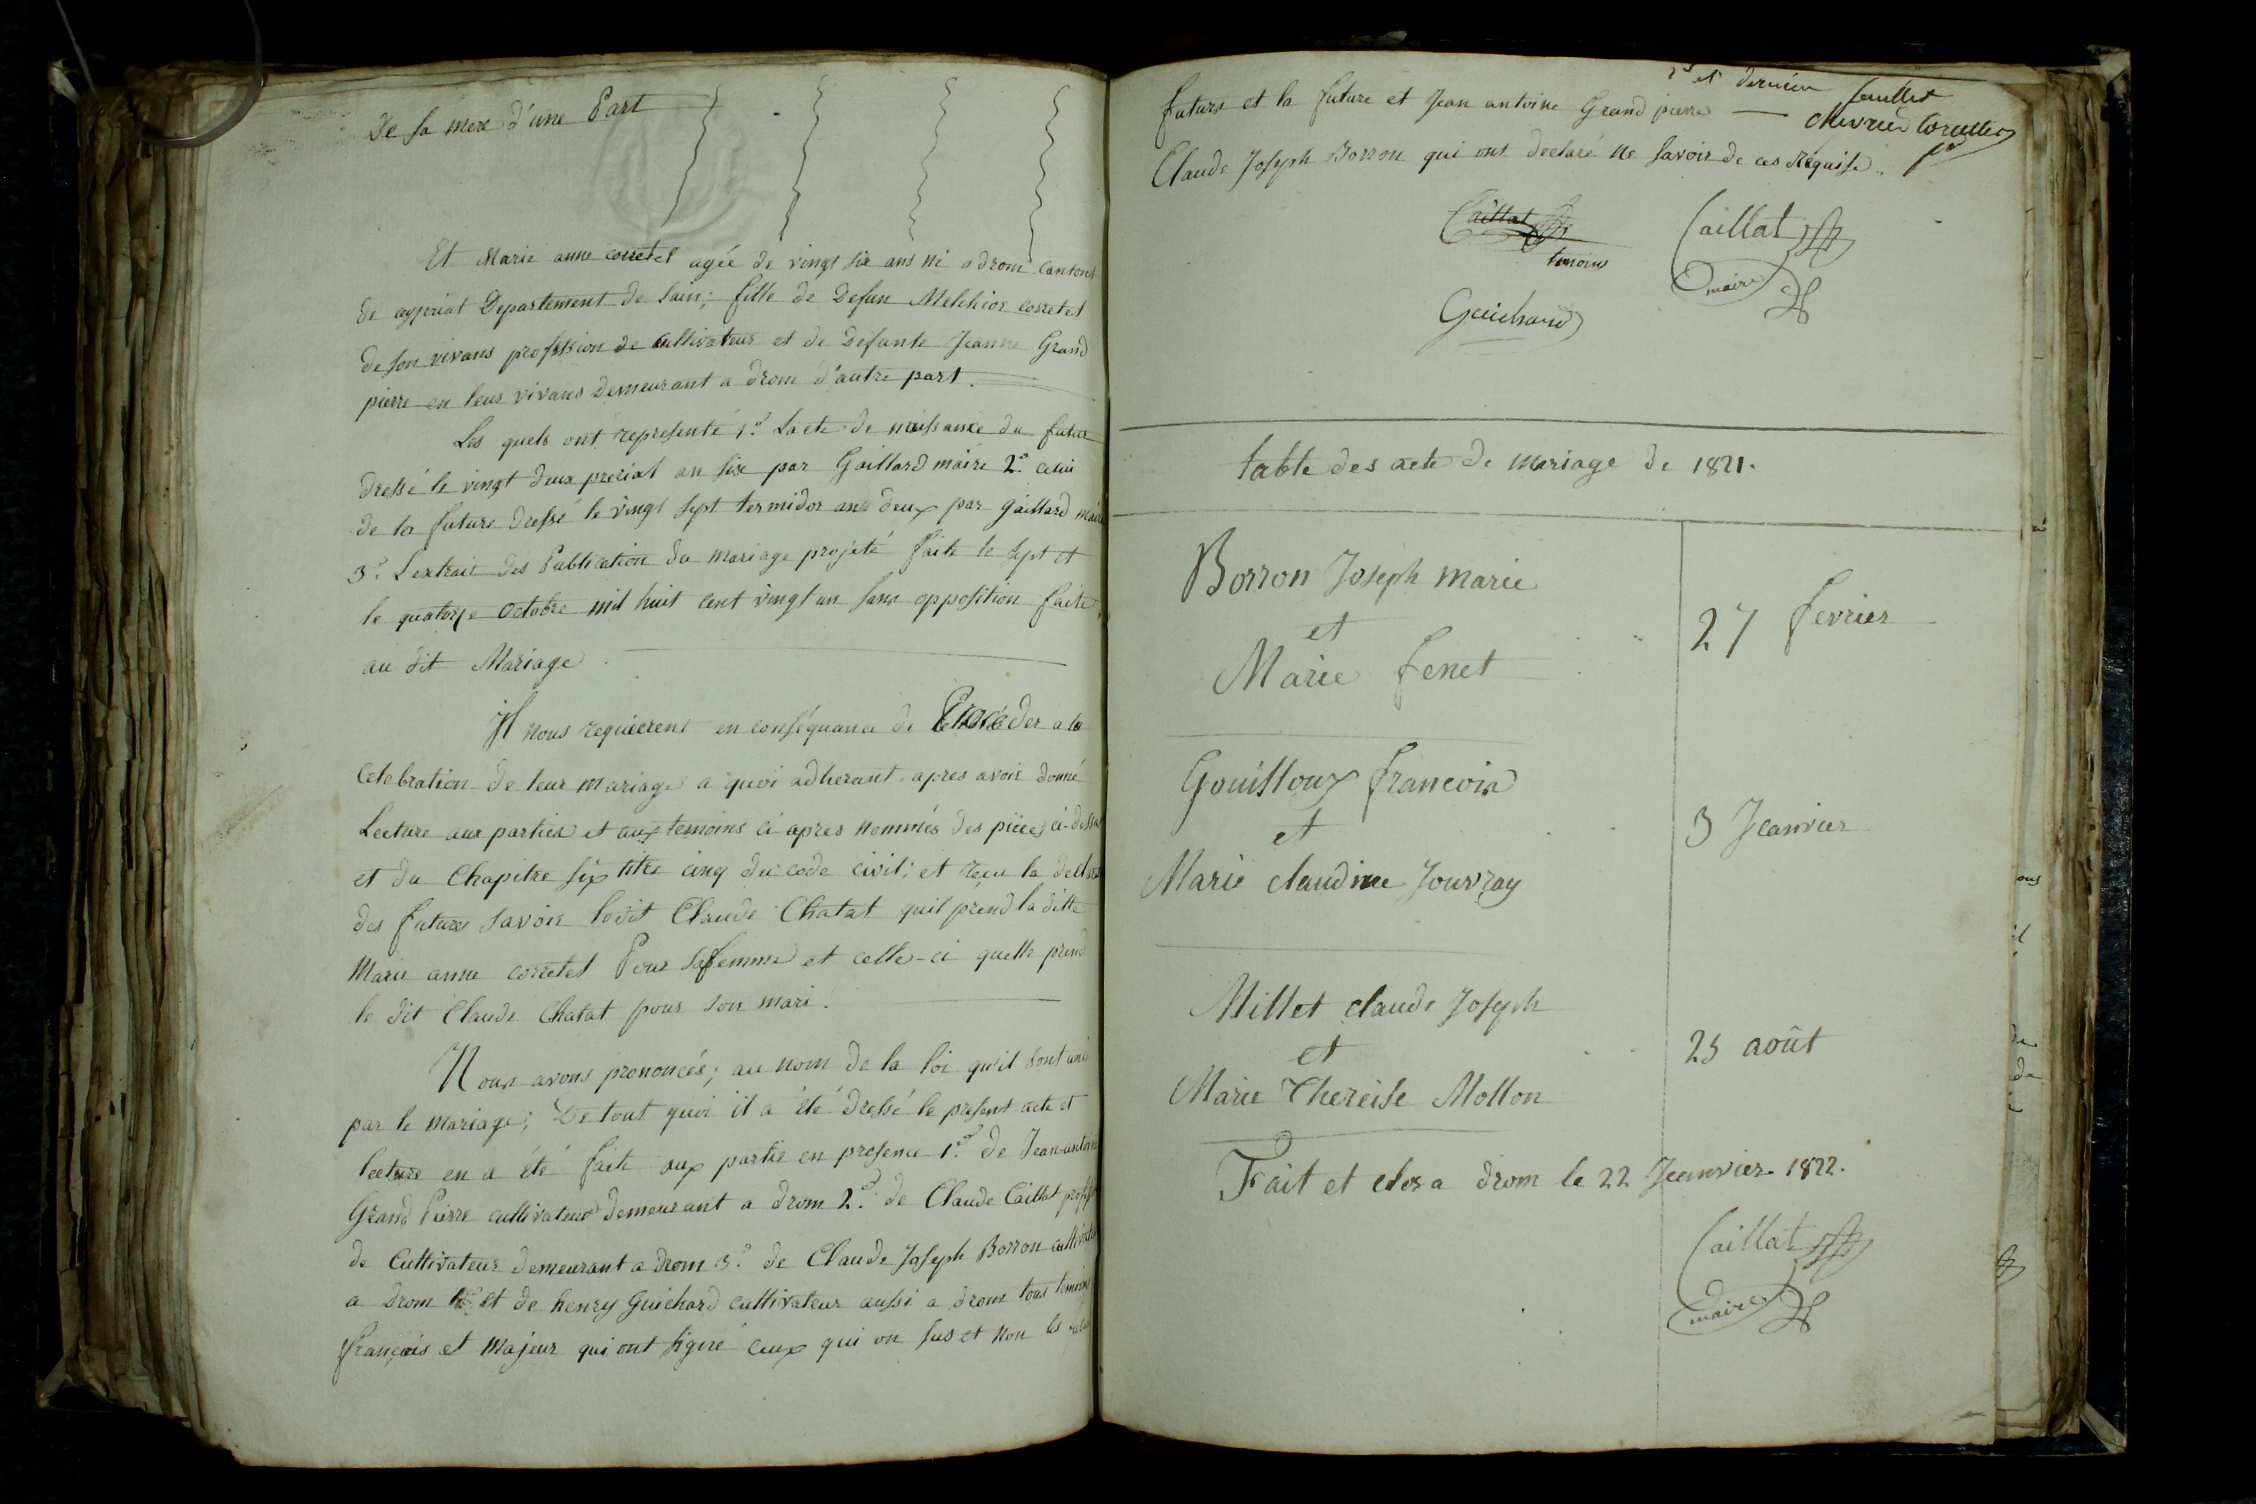 De sa mere d'une Part
Et Marie anne corretet agée de vingt six ans né a drom cantons
de ceyzeriat Departement de Lain; fille de Defun Melchior corretet
de son vivans profession de cultivateur et de Defunte Jeanne Grand
pierre en leus vivans Demeurant a drom d'autre part.
Les quels ont representé 1.º Lacte de naissance du futur
dressé le vingt deux precial an six par Gaillard maire 2.º celui
de la future dressé le vingt sept termidor ans deux par gaillard maire
3.º L'extrait des Publication du mariage projeté faite le sept et
le quatorze octobre mil huit cent vingt un sans opposition faite
au dit Mariage
Il nous requierent en conséquance de Proceder a la
Celebration de leur mariage a quoi adherant apres avoir donné
Lecture aux parties et aux temoins ci apres nommés des pieces ci-dessus
et du Chapitre six titre cinq du code civil; et recu la
des futures savoir ledit Claude Chatat quil prend la ditte
Marie anne corretet Pour sa femme et celle-ci quelle prend
le dit Claude Chatat pour son mari.
Nous avons prononcés; au nom de la loi qu'il sont unis
par le mariage; De tout quoi il a été dressé le present acte et
lecture en a été faite aux partie en presence 1.º de Jean-antoine
Grand Pierre cultivateur demeurant a drom 2.º de Claude Caillat
de Cultivateur demeurant a drom 3.º de Claude Joseph Borron
a drom et de henry Guichard cultivateur aussi a drom tous temoins
français et majeur qui ont signé ceux qui on sus et non les
2.d et dernier feuillet
futurs et la future et Jean antoine Grand pierre
Claude Joseph Borron qui ont declaré ne savoir de ces Requise.
Caillat
temoins
Caillat
maire
Guichard
table des acte de mariage de 1821.
Borron Joseph marie
et
Marie fenet
27 fevrier
Gouilloux francois
et
Marie claudine Jouvray
3 Jeanvier
Millet claude Joseph
et
Marie Thereise Mollon
25 août
Fait et clos a drom le 22 Jeanvier 1822.
Caillat
maire